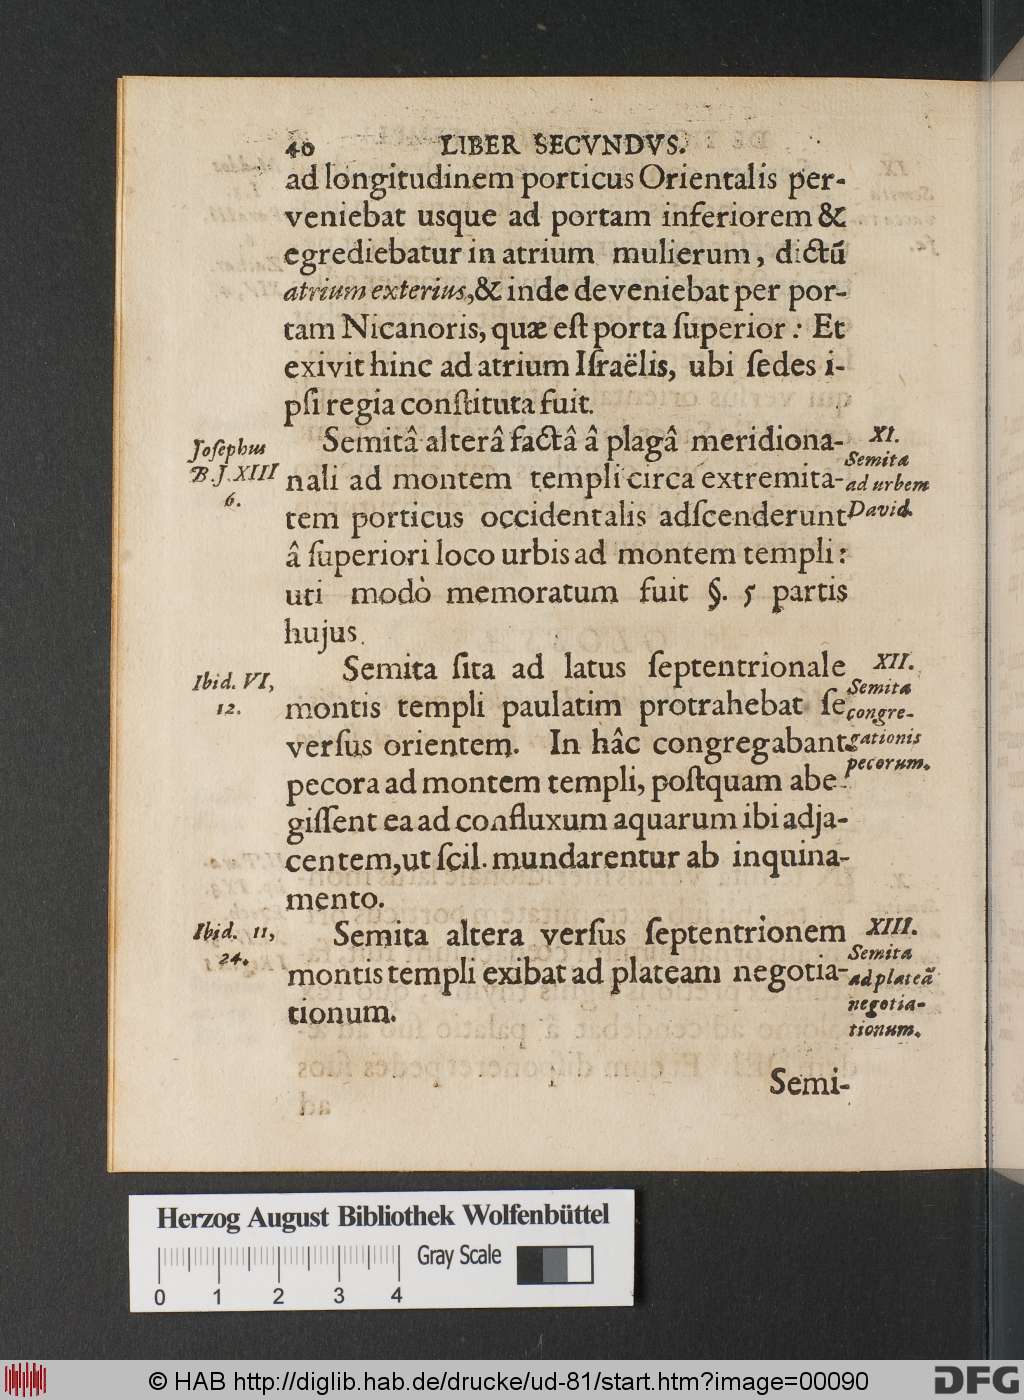 40 LIBER SECVNDVS.
ad longitudinem porticus Orientalis per-
veniebat usque ad portam inferiorem &
egrediebatur in atrium mulierum, dictū
atrium exterius, & inde deveniebat per por-
tam Nicanoris, quæ eſt porta ſuperior: Et
exivit hinc ad atrium Iſraëlis, ubi ſedes i-
pſi regia conſtituta fuit.
Semitâ alterâ factâ â plagâ meridiona-
nali ad montem templi circa extremita-
tem porticus occidentalis adſcenderunt
â ſuperiori loco urbis ad montem templi:
uti modò memoratum fuit §. 5 partis
hujus.
Joſephus
B. J. XIII
6.
XI.
Semita
ad urbem
David.
Semita ſita ad latus ſeptentrionale
montis templi paulatim protrahebat ſe
verſus orientem. In hâc congregabant
pecora ad montem templi, poſtquam abe-
giſſent ea ad confluxum aquarum ibi adja-
centem, ut ſcil. mundarentur ab inquina-
mento.
Ibid. VI,
12.
XII.
Semita
congre-
gationis
pecorum.
Semita altera verſus ſeptentrionem
montis templi exibat ad plateam negotia-
tionum.
Ibid. 11,
24.
XIII.
Semita
ad plateā
negotia-
tionum.
Semi-
Herzog August Bibliothek Wolfenbüttel
Gray Scale
0 1 2 3 4
© HAB http://diglib.hab.de/drucke/ud-81/start.htm?image=00090
DFG